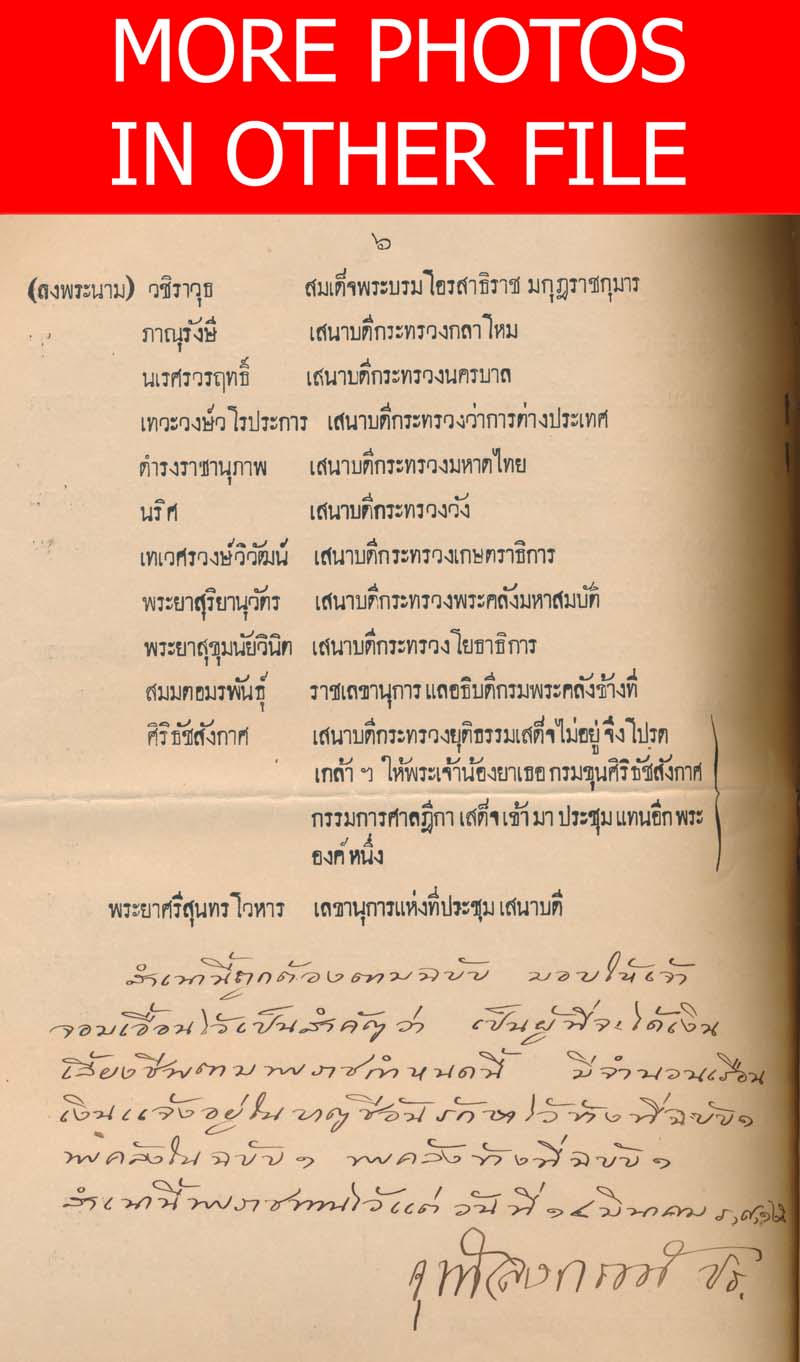 MORE PHOTOS
IN OTHER FILE
๖
(ลงพระนาม) วชิราวุธ สมเด็จพระบรมโอรสาธิราช มกุฎราชกุมาร
ภาณุรังษี เสนาบดีกระทรวงกลาโหม
นเรศรวรฤทธิ์ เสนาบดีกระทรวงนครบาล
เทวะวงษ์วโรประการ เสนาบดีกระทรวงว่าการต่างประเทศ
ดำรงราชานุภาพ เสนาบดีกระทรวงมหาดไทย
นริศ เสนาบดีกระทรวงวัง
เทเวศรวงษ์วิวัฒน์ เสนาบดีกระทรวงเกษตราธิการ
พระยาสุริยานุวัตร เสนาบดีกระทรวงพระคลังมหาสมบัติ
พระยาสุขุมนัยวินิต เสนาบดีกระทรวงโยธาธิการ
สมมตอมรพันธุ์ ราชเลขานุการ แลอธิบดีกรมพระคลังข้างที่
ศิริธัชสังกาศ เสนาบดีกระทรวงยุติธรรมเสด็จไม่อยู่ จึงโปรด
เกล้า ฯ ให้พระเจ้าน้องยาเธอ กรมขุนศิริธัชสังกาศ
กรรมการศาลฎีกา เสด็จเข้ามาประชุมแทนอีกพระ
องค์หนึ่ง
พระยาศรีสุนทรโวหาร เลขานุการแห่งที่ประชุมเสนาบดี
สำเนานี้ถูกต้องตามฉบับ มอบให้เจ้า
จอมเอื้อนไว้เป็นสำคัญว่า เป็นผู้ที่จะได้เงิน
เลี้ยงชีพตามพระราชกำหนดนี้ มีจำนวนเรือน
เงินแจ้งอยู่ใน บาญชีอันรักษาไว้ข้างที่ฉบับ๑
พระคลังในฉบับ ๑ พระคลังข้างที่ฉบับ ๑
สำเนานี้พระราชทานไว้แต่ วันที่ ๑๔ มีนาคม
จุฬาลงกรณ์ ปร.